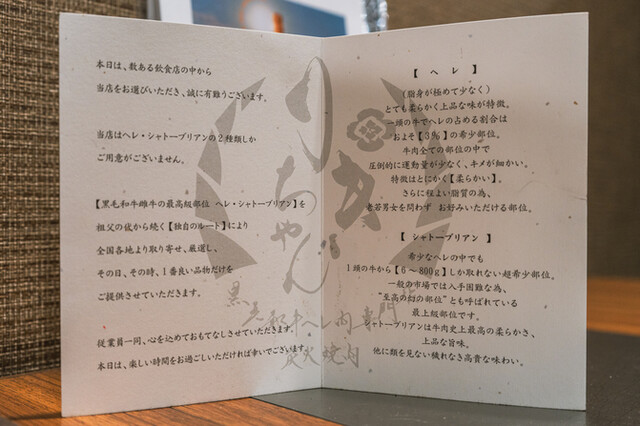 本日は、数ある飲食店の中から
当店をお選びいただき、誠に有難うございます。
当店はヘレ・シャトーブリアンの2種類しか
ご用意がございません。
【黒毛和牛雌牛の最高級部位 ヘレ・シャトーブリアン】を
祖父の代から続く【独自のルート】により
全国各地より取り寄せ、厳選し、
その日、その時、1番良い品物だけを
ご提供させていただきます。
従業員一同、心を込めておもてなしさせていただきます。
本日は、楽しい時間をお過ごしいただければ幸いでございます。
【 ヘレ 】
(脂身が極めて少なく)
とても柔らかく上品な味が特徴。
一頭の牛でヘレの占める割合は
およそ【3%】の希少部位。
牛肉全ての部位の中で
圧倒的に運動量が少なく、キメが細かい。
特徴はとにかく【柔らかい】。
さらに程よい脂質の為、
老若男女を問わず お好みいただける部位。
【 シャトーブリアン 】
希少なヘレの中でも
1頭の牛から【6~800g】しか取れない超希少部位。
一般の市場では入手困難な為、
“至高の幻の部位”とも呼ばれている
最上級部位です。
シャトーブリアンは牛肉史上最高の柔らかさ、
上品な旨味。
他に類を見ない穢れなき高貴な味わい。
りちゃんち
黒毛和牛ヘレ肉専門
炭火焼肉